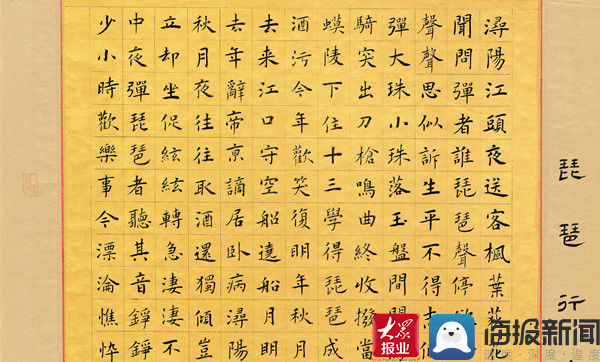 琵琶行
潯陽江頭夜送客楓葉荻花
聞問彈者誰琵琶聲停欲
聲聲思似訴生平不得志
彈大珠小珠落玉盤間關
騎突出刀槍鳴曲終收撥當
蟆陵下住十三學得琵琶成
酒污今年歡笑復明年秋月
去来江口守空船遶船月明
去年辭帝京謫居卧病潯陽
秋月夜往往取酒還獨傾豈
立却坐促絃絃轉急淒淒不
中夜彈琵琶者聽其音錚錚
少小時歡樂事今漂淪憔悴
大众
报业
海报新闻